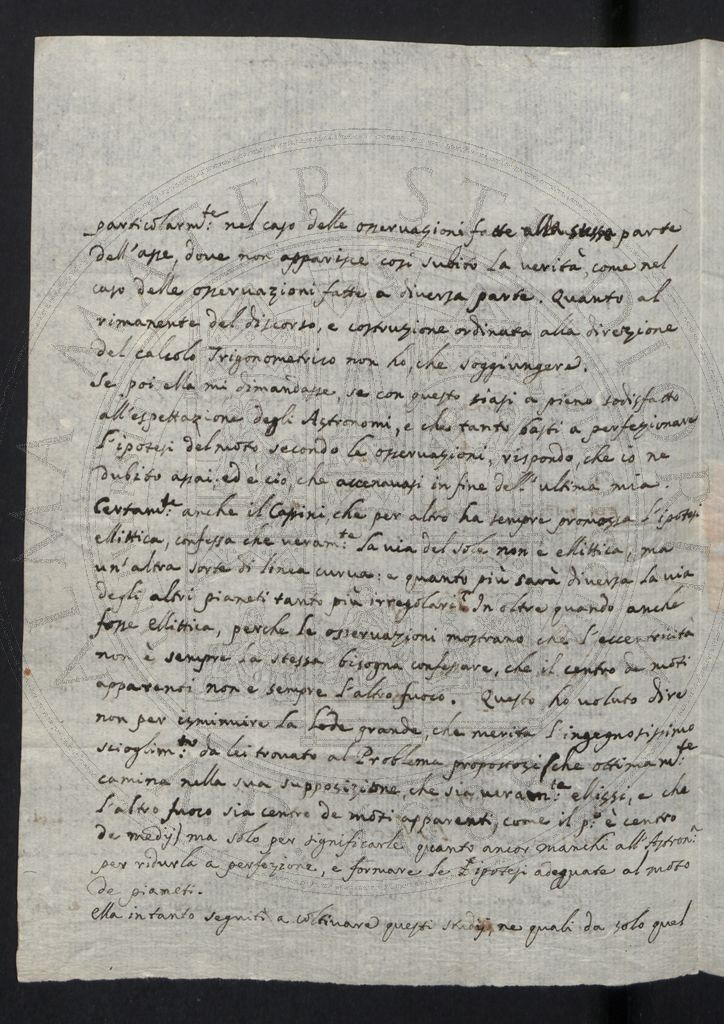 particolarm:te nel caso delle osservazioni fatte alla stessa parte
dell'asse, dove non apparisce così subito la verità, come nel
caso delle osservazioni fatte a diversa parte. Quanto al
rimanente del discorso, e costruzione ordinata alla direzione
del calcolo Trigonometrico non ho, che soggiungere.
Se poi ella mi dimandasse, se con questo siasi a pieno sodisfatto
all'espettazione degli Astronomi, e che tanto basti a perfezionare
l'ipotesi del moto secondo le osservazioni, rispondo, che io ne
dubito assai; ed è ciò, che accennavasi in fine dell'ultima mia.
Certam:te anche il Cassini, che per altro ha sempre promossa l'ipotesi
ellittica, confessa che veram:te la via del sole non è ellittica, ma
un'altra sorte di linea curva: e quanto più sarà diversa la via
degli altri pianeti tanto più irregolari? In oltre quando anche
fosse ellittica, perche le osservazioni mostrano che l'eccentricità
non è sempre la stessa bisogna confessare, che il centro de moti
apparenti non è sempre l'altro fuoco. Questo ho voluto dire
non per isminuire la lode grande, che merita l'ingegnosissimo
scioglim:to da lei trovato al Problema propostosi (che ottimam:te
camina nella sua supposizione, che sia veram:te ellissi, e che
l'altro fuoco sia centro de moti apparenti, come il p:o è centro
de medij) ma solo per significarle quanto ancor manchi all'Astron:a
per ridurla a perfezzione, e formare le ipotesi adeguate al moto
de pianeti.
Ella intanto seguiti a coltivare questi studij, ne quali da solo quel